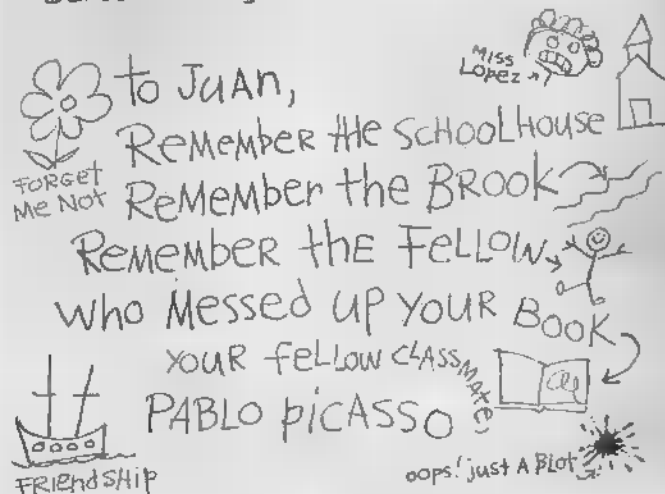 MISS
LOPEZ
to JUAN,
REMEMBER tHe SCHOOLHOUSE
FORGet
Me NOt
ReMeMbeR the BROOK
ReMeMbER thE FeLLOW
who Messed UP YOUR BOOK
YOUR feLLOW CLASSMATE,
PABLO PiCASSO
FRIEndSHip
oops! just A BLOt